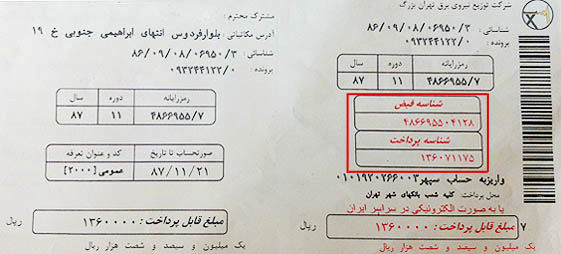 شرکت توزیع نیروی برق تهران بزرگ
شناسائی : ۸۶/۰۹/۰۸/۰۶۹۵۰/۳
پرونده : ۰۹۳۲۴۴۱۲۲/۰
رمزرایانه دوره سال
۴۸۶۶۹۵۵/۷ ۱۱ ۸۷
شناسه قبض
۴۸۶۶۹۵۵۰۴۱۲۸
شناسه پرداخت
۱۳۶۰۷۱۱۷۵
واریزبه حساب سپهر ۰۱۰۱۹۲۰۲۶۶۰۰۳
محل پرداخت: کلیه شعب بانکهای شهر تهران
یا به صورت الکترونیکی در سراسر ایران
۷ مبلغ قابل پرداخت : ۱۳۶۰۰۰۰ ریال
یک میلیون و سیصد و شصت هزار ریال
مشترک محترم :
آدرس مکاتباتی : بلوارفردوس انتهای ابراهیمی جنوبی خ ۱۹
شناسائی : ۸۶/۰۹/۰۸/۰۶۹۵۰/۳
پرونده : ۰۹۳۲۴۴۱۲۲/۰
رمزرایانه دوره سال
۴۸۶۶۹۵۵/۷ ۱۱ ۸۷
صورتحساب تا تاریخ کد و عنوان تعرفه
۸۷/۱۱/۲۱ عمومی [۲۰۰۰]
مبلغ قابل پرداخت : ۱۳۶۰۰۰۰ ریال
یک میلیون و سیصد و شصت هزار ریال